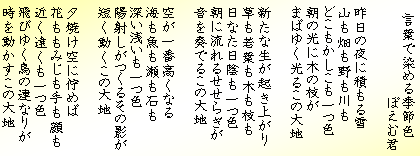 言葉で染める季節色
ぽえむ君
昨日の夜に積もる雪
山も畑も野も川も
どこもかしこも一つ色
朝の光に木の枝が
まばゆく光るこの大地
新たな生が起き上がり
草も若葉も木も枝も
日なた日陰も一つ色
朝に流れるせせらぎが
音を奏でるこの大地
空が一番高くなる
海も魚も瀬も石も
深い浅いも一つ色
陽射しがつくるその影が
短く動くこの大地
夕焼け空に佇めば
花ももみじも手も顔も
近く遠くも一つ色
飛びゆく鳥の連なりが
時を動かすこの大地